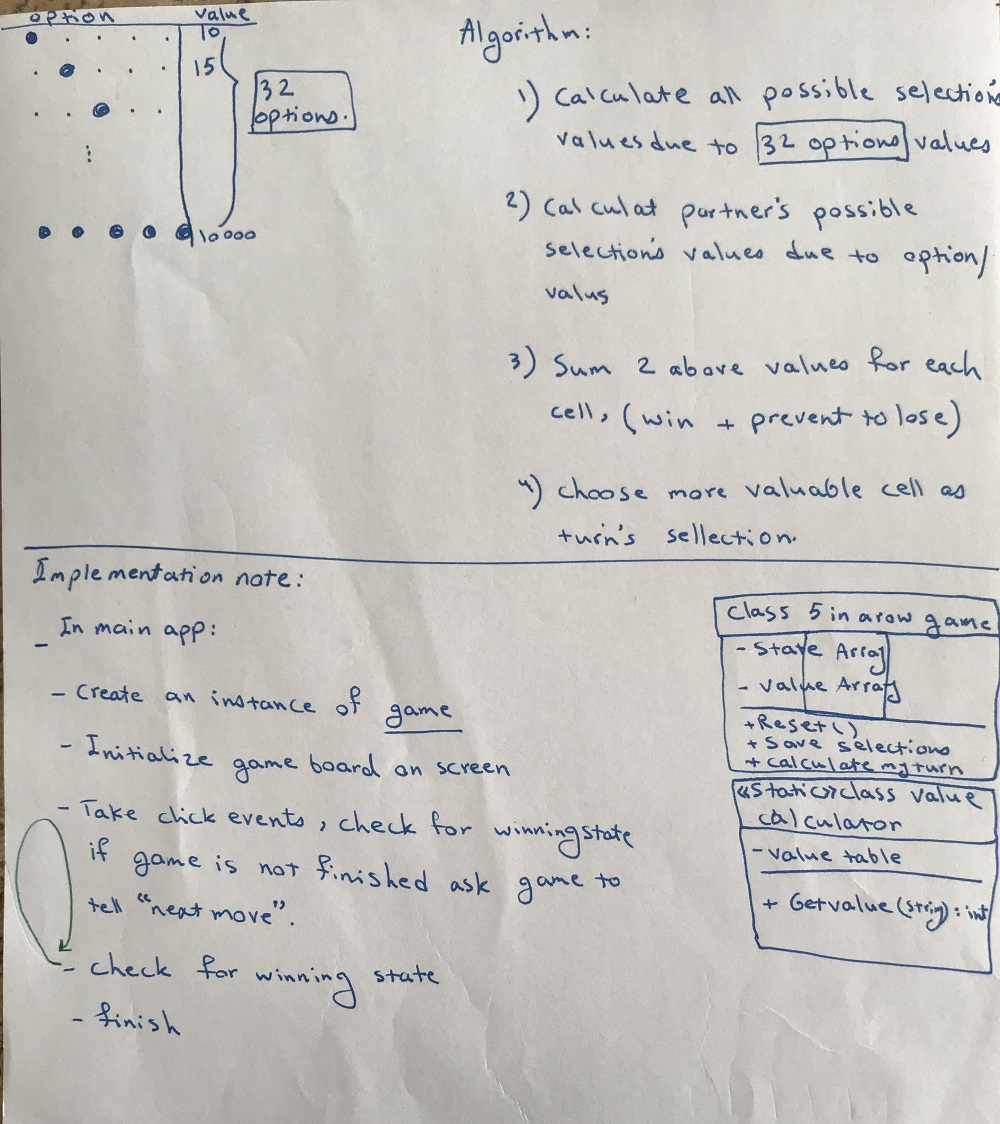 option value
10
15
32
options.
10000
Algorithm:
1) Calculate all possible selection's
values due to 32 options values
2) Calculat partner's possible
selection's values due to option/
valus
3) Sum 2 above values for each
cell, (win + prevent to lose)
4) choose more valuable cell as
turn's sellection.
Implementation note:
- In main app:
- Create an instance of game
- Initialize game board on screen
- Take click events, check for winning state
if game is not finished ask game to
tell "next move".
- check for winning state
- finish
class 5 in a row game
- State Array
- Value Array
+ Reset()
+ Save selections
+ calculate my turn
«Static» class value
calculator
- value table
+ Getvalue (string): int